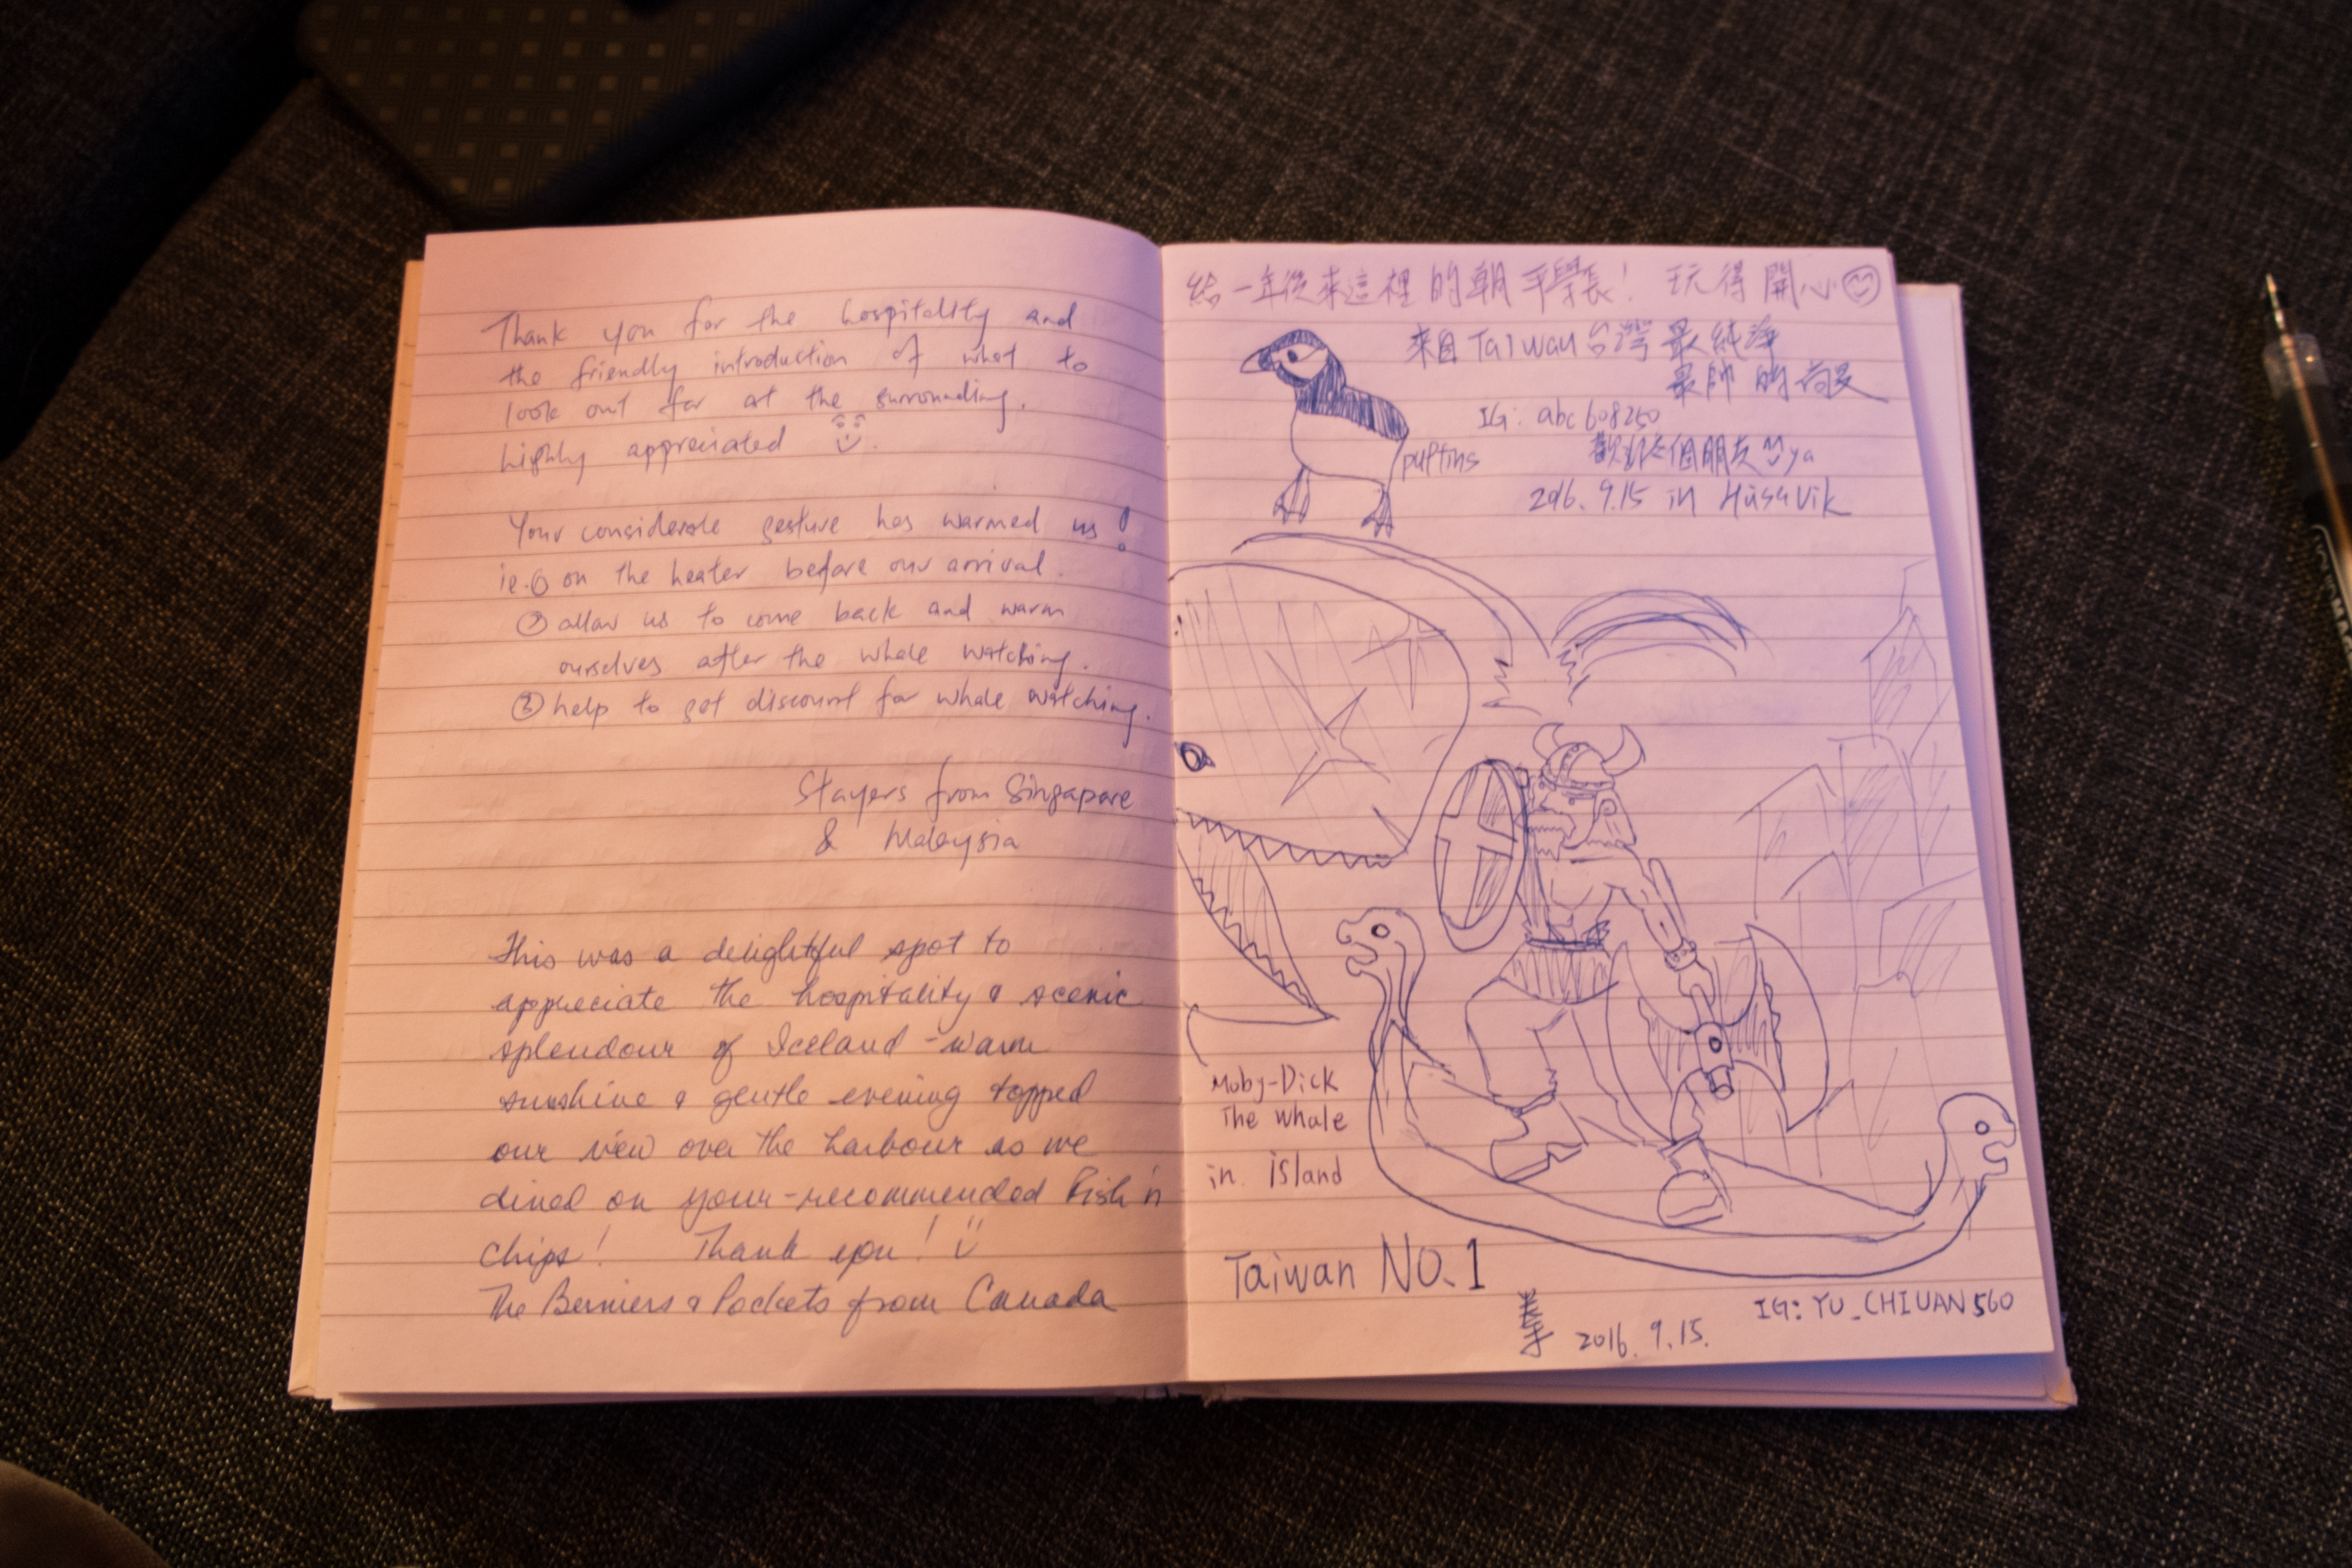 Thank you for the hospitality and
the friendly introduction of what to
look out for at the surrounding.
highly appreciated
Your considerate gesture has warmed us!
ie. ① on the heater before our arrival.
② allow us to come back and warm
ourselves after the whale watching.
③ help to get discount for whale watching.
Stayers from Singapore
& Malaysia
This was a delightful spot to
appreciate the hospitality & scenic
splendour of Iceland - warm
sunshine & gentle evening topped
our view over the harbour as we
dined on your-recommended Fish 'n
Chips! Thank you!
The Berniers & Pockets from Canada
給一年後來這裡的朝平學長! 玩得開心
來自Taiwan台灣 最純淨
最帥的
IG: abc608250
puffins
歡迎交個朋友 ya
2016. 9.15 in Húsavík
Moby-Dick
The whale
in island
Taiwan NO.1
IG: YU_CHIUAN560
2016. 9.15.